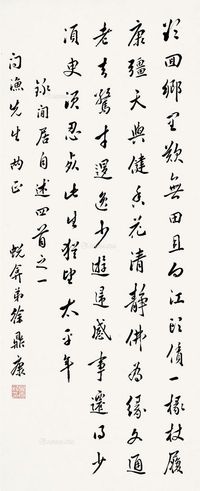 欲回鄉里歎無田且向江頭債一椽杖履
康彊天與健香花清靜佛為緣文通
老去驚才退逸少遊還感事遷得少
須臾須忍死此生猶望太平年
錄閒居自述四首之一
問漁先生兩正
蛻弇弟徐鼎康